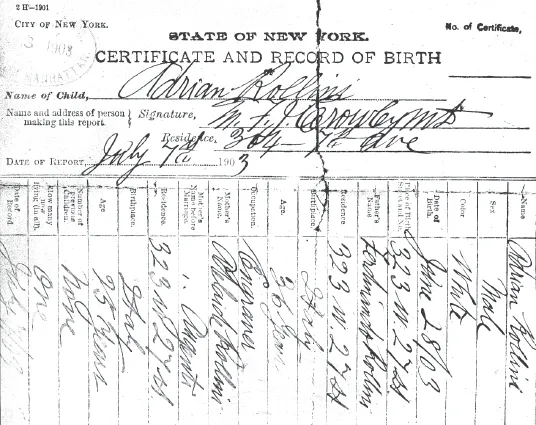 2 H-1901
CITY OF NEW YORK.
No. of Certificate,
3 1903
MANHATTAN
STATE OF NEW YORK.
CERTIFICATE AND RECORD OF BIRTH
OF
Name of Child, Adrian Rollini
Name and address of person making this report. Signature, M. F. J.
Residence, 364 - 7th Ave
DATE OF REPORT, July 7th 1903
Name Adrian Rollini
Sex Male
Color White
Date of Birth. June 28/03
Place of Birth, Street and No. 323 W. 27 St
Father's Name Ferdinando Rollini
Residence 323 W. 27 St
Birthplace Italy
Age. 26 Years
Occupation.
Mother's Name. Rollini
Mother's Name before Marriage. "
Residence. 323 W 27 St
Birthplace. Italy
Age 25 Years
Number of Previous Children. None
How many now living (in all). One
Date of Record